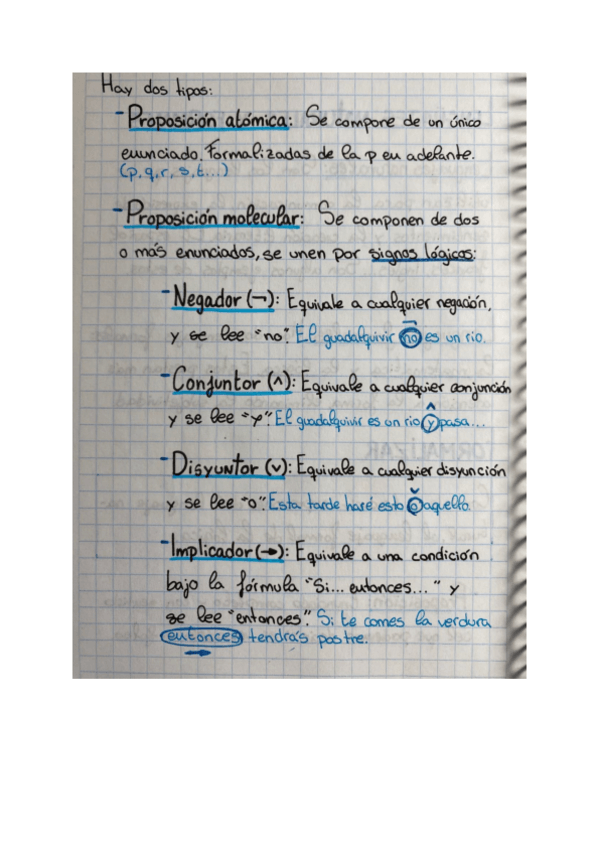 Hay dos tipos:
-Proposición atómica: Se compone de un único
enunciado. Formalizadas de la p en adelante.
(p, q, r, s, t...)
-Proposición molecular: Se componen de dos
o más enunciados, se unen por signos lógicos:
-Negador (¬): Equivale a cualquier negación,
y se lee "no". El guadalquivir no es un rio.
-Conjuntor (∧): Equivale a cualquier conjunción
y se lee "y". El guadalquivir es un rio y pasa...
-Disyuntor (∨): Equivale a cualquier disyunción
y se lee "o". Esta tarde haré esto o aquello.
-Implicador (→): Equivale a una condición
bajo la fórmula "Si... entonces..." y
se lee "entonces". Si te comes la verdura
entonces tendrás postre.